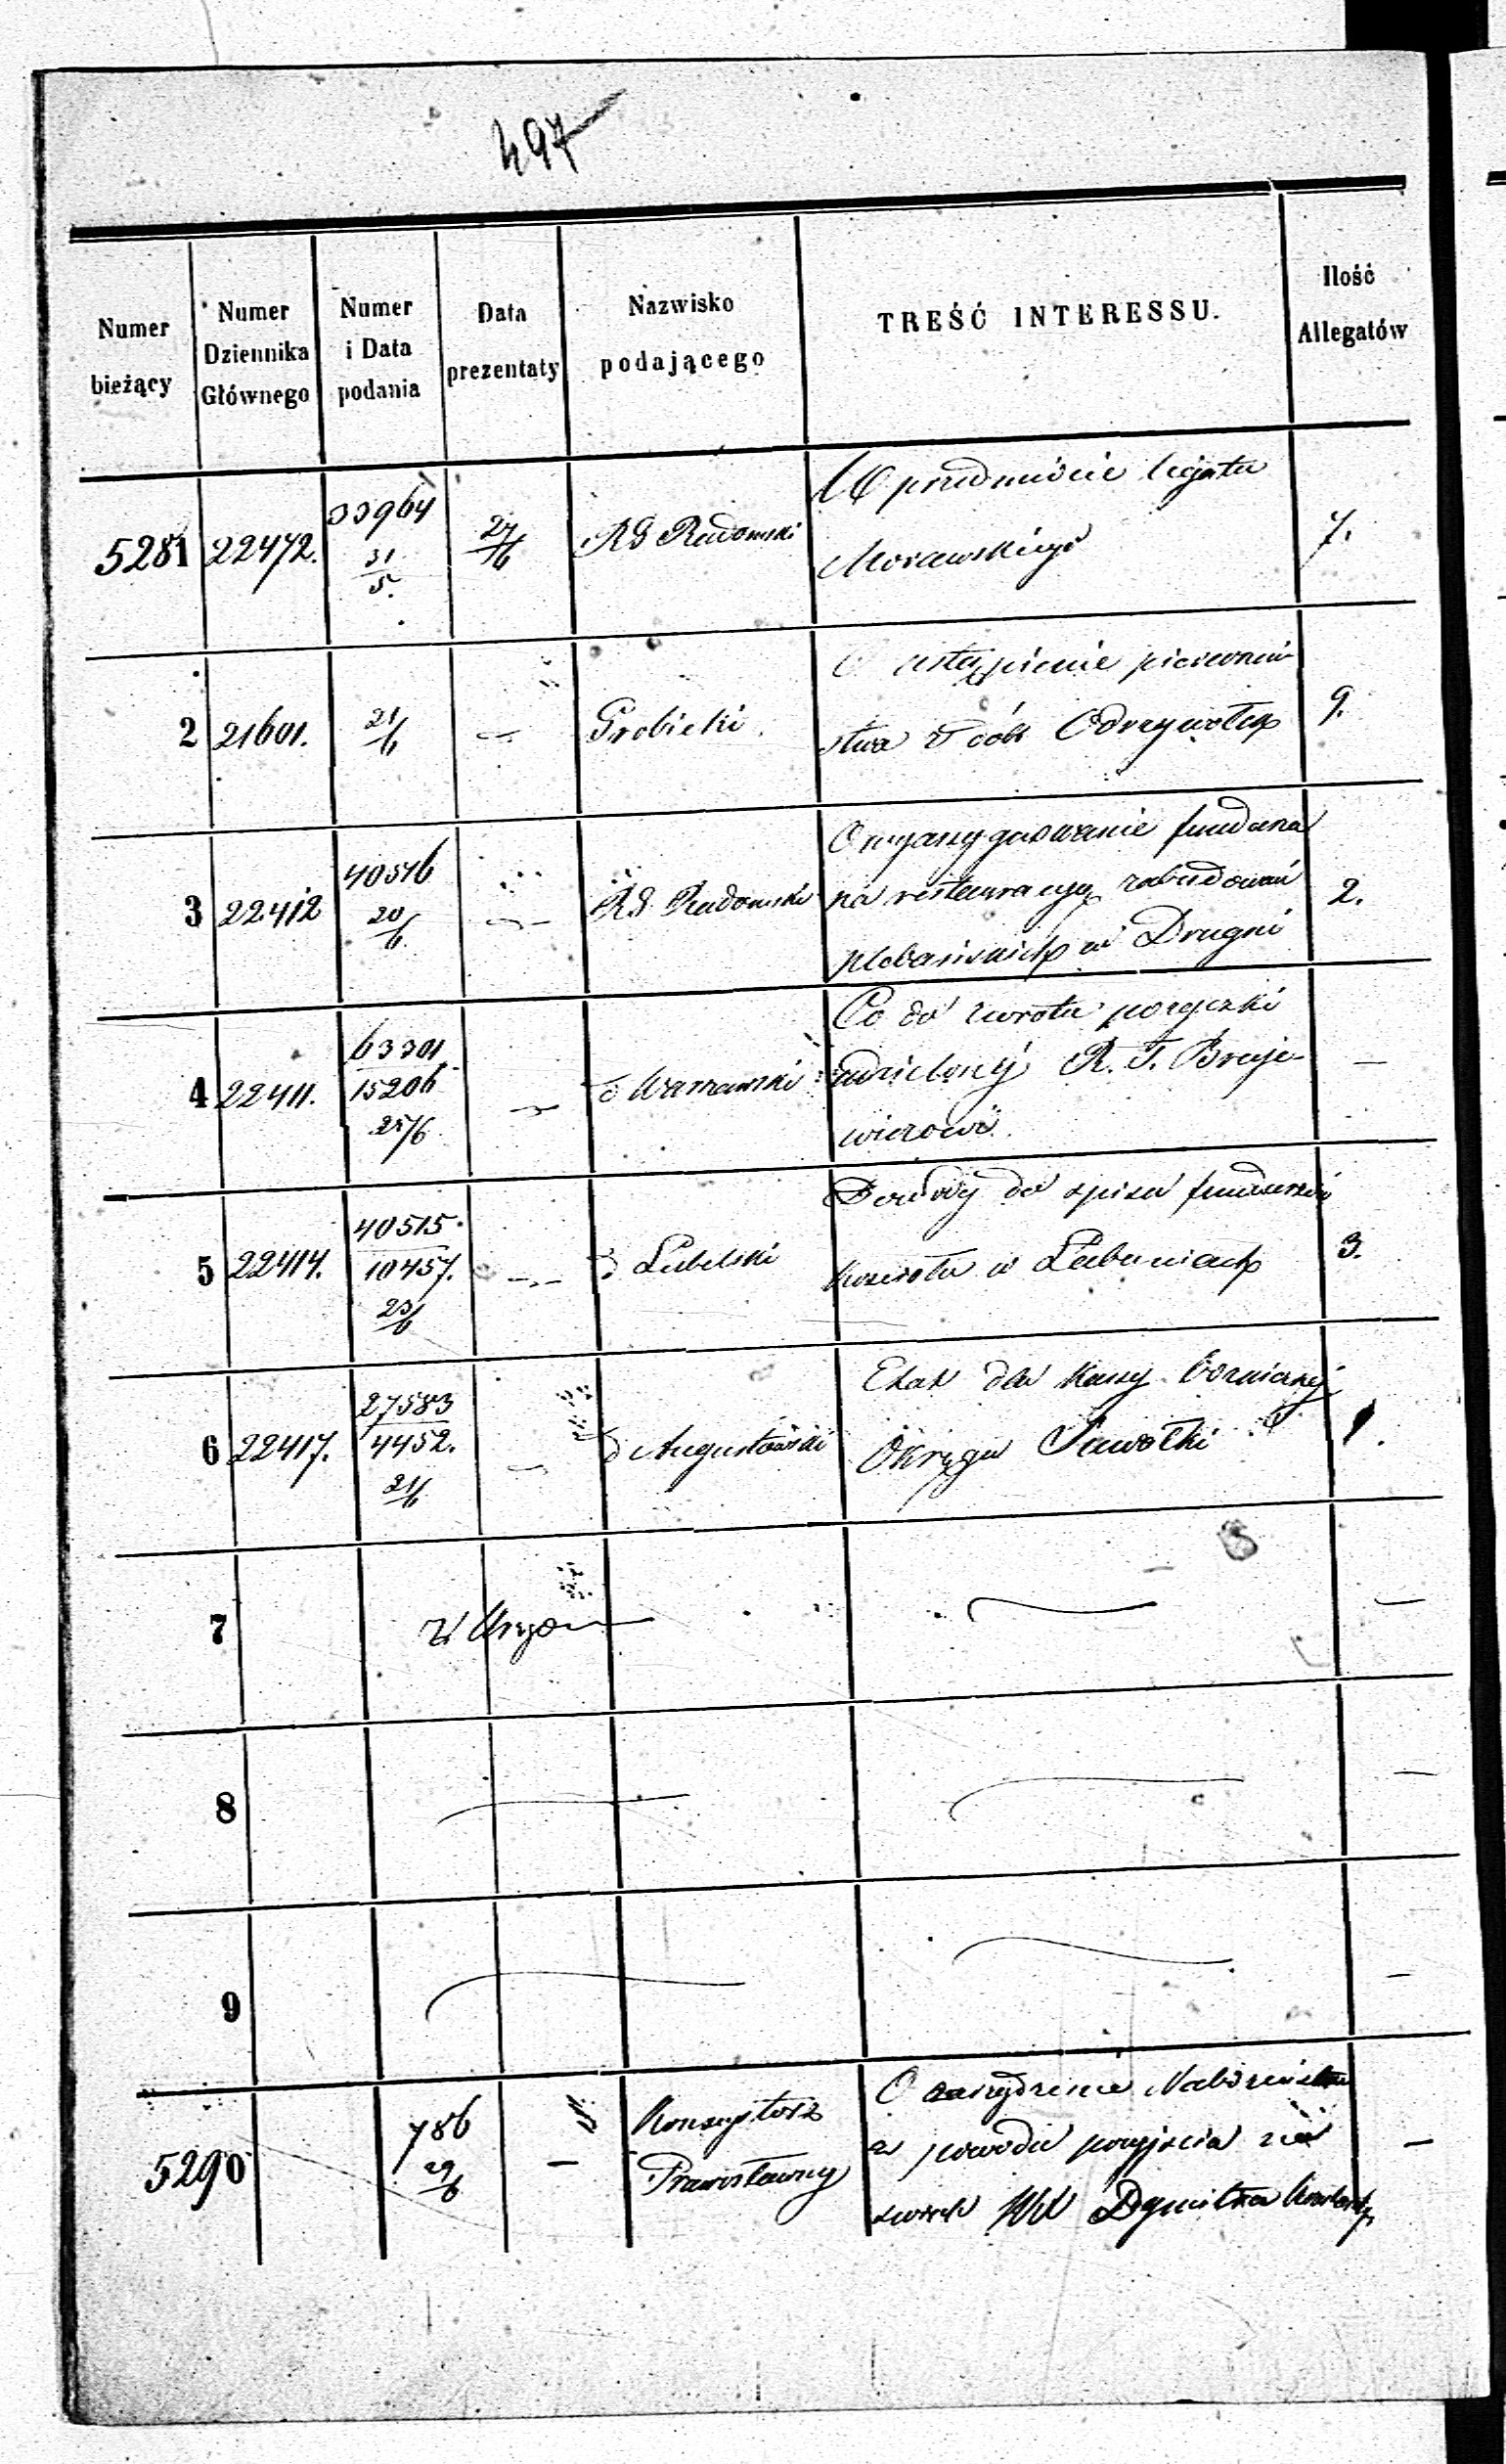 497
Numer bieżący
Numer Dziennika Głównego
Numer i Data podania
Data prezentaty
Nazwisko podającego
TREŚĆ INTERESSU.
Ilość Allegatów
5281 22472. 33964 31/5. 27/6 RG Radomski
W przedmiocie legatu
Morawskiego
7.
2 21601. 21/6 — Grobicki.
O ustąpienie pierwszeń-
stwa dóbr Odrzywołek
9.
3 22412 40516 20/6. — RG Radomski
O wyassygnowanie
na restauracyę zabudowań
plebańskich w Drugni
2.
4 22411. 63301 15206 25/6. — d Warszawski
Co do zwrotu pożyczki
udzielonej R. T.
—
5 22414. 40515. 10457. 23/6 — d Lubelski
Dowody do spisu funduszów
kościoła w Łabuniach
3.
6 22417. 27583 4452. 21/6 — d Augustowski
Etat dla Kassy
Okręgu Suwałki
1.
7
—
8
—
9
—
5290 786 29/6 — Konsystorz
Prawosławny
O zarządzenie Nabożeństwa
z powodu przyjścia na
WX Dymitra
—